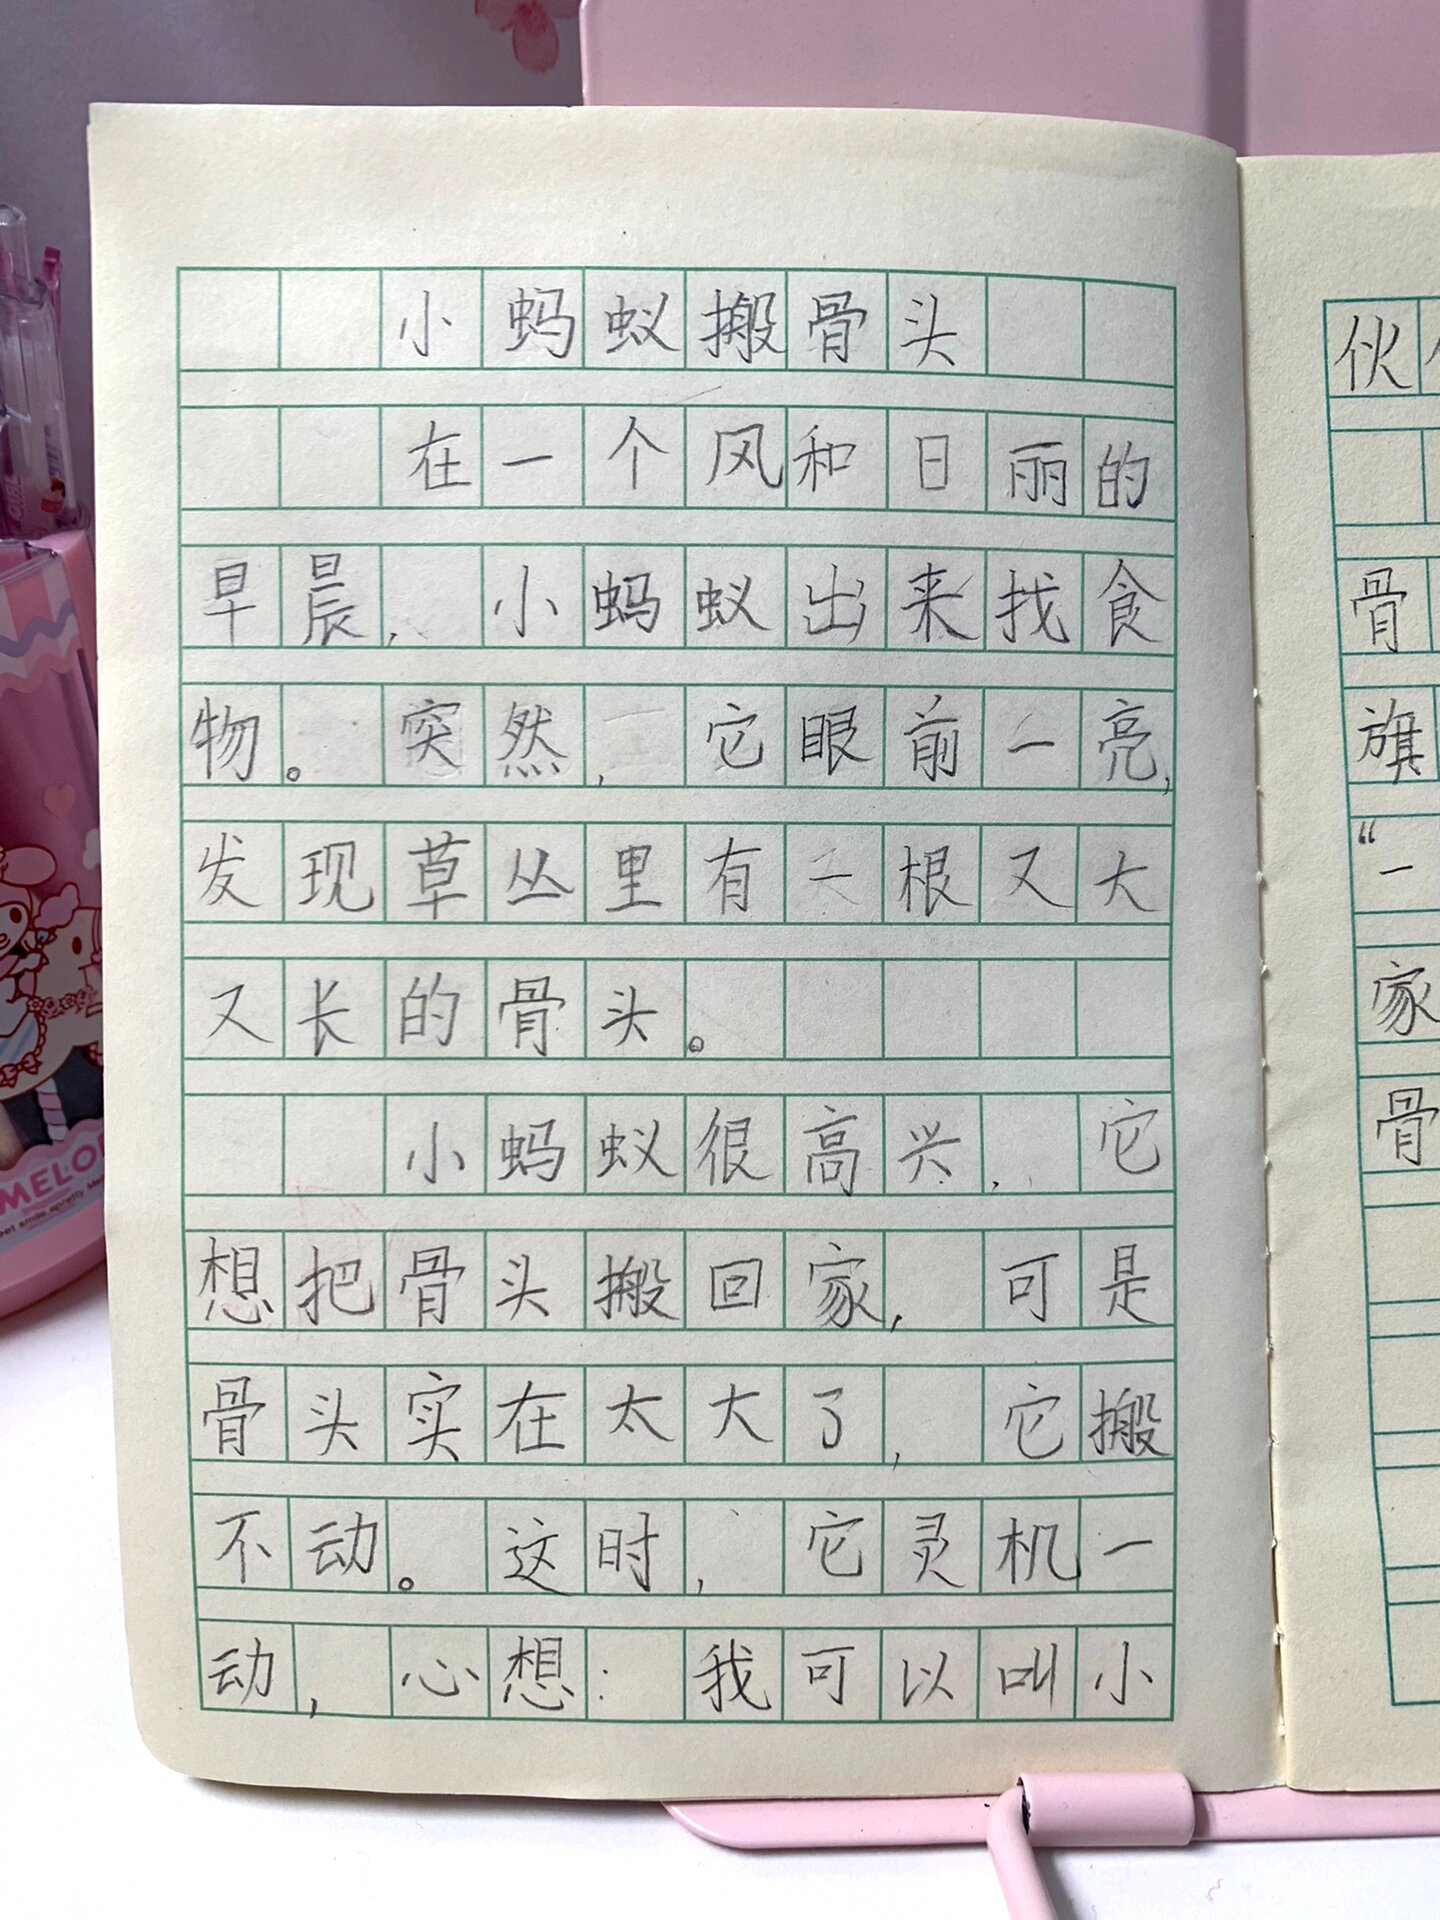 小蚂蚁搬骨头
在一个风和日丽的
早晨，小蚂蚁出来找食
物。突然，它眼前一亮，
发现草丛里有一根又大
又长的骨头。
小蚂蚁很高兴，它
想把骨头搬回家，可是
骨头实在太大了，它搬
不动。这时，它灵机一
动，心想：我可以叫小
伙
骨
旗
“一
家
骨